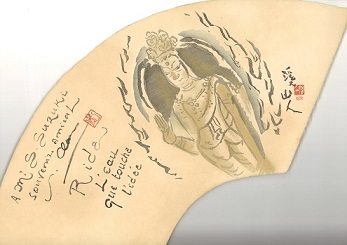 A Mr S SUZUKI
souvenir amical
Rida
L'eau
que touche
l'idée
溪山人